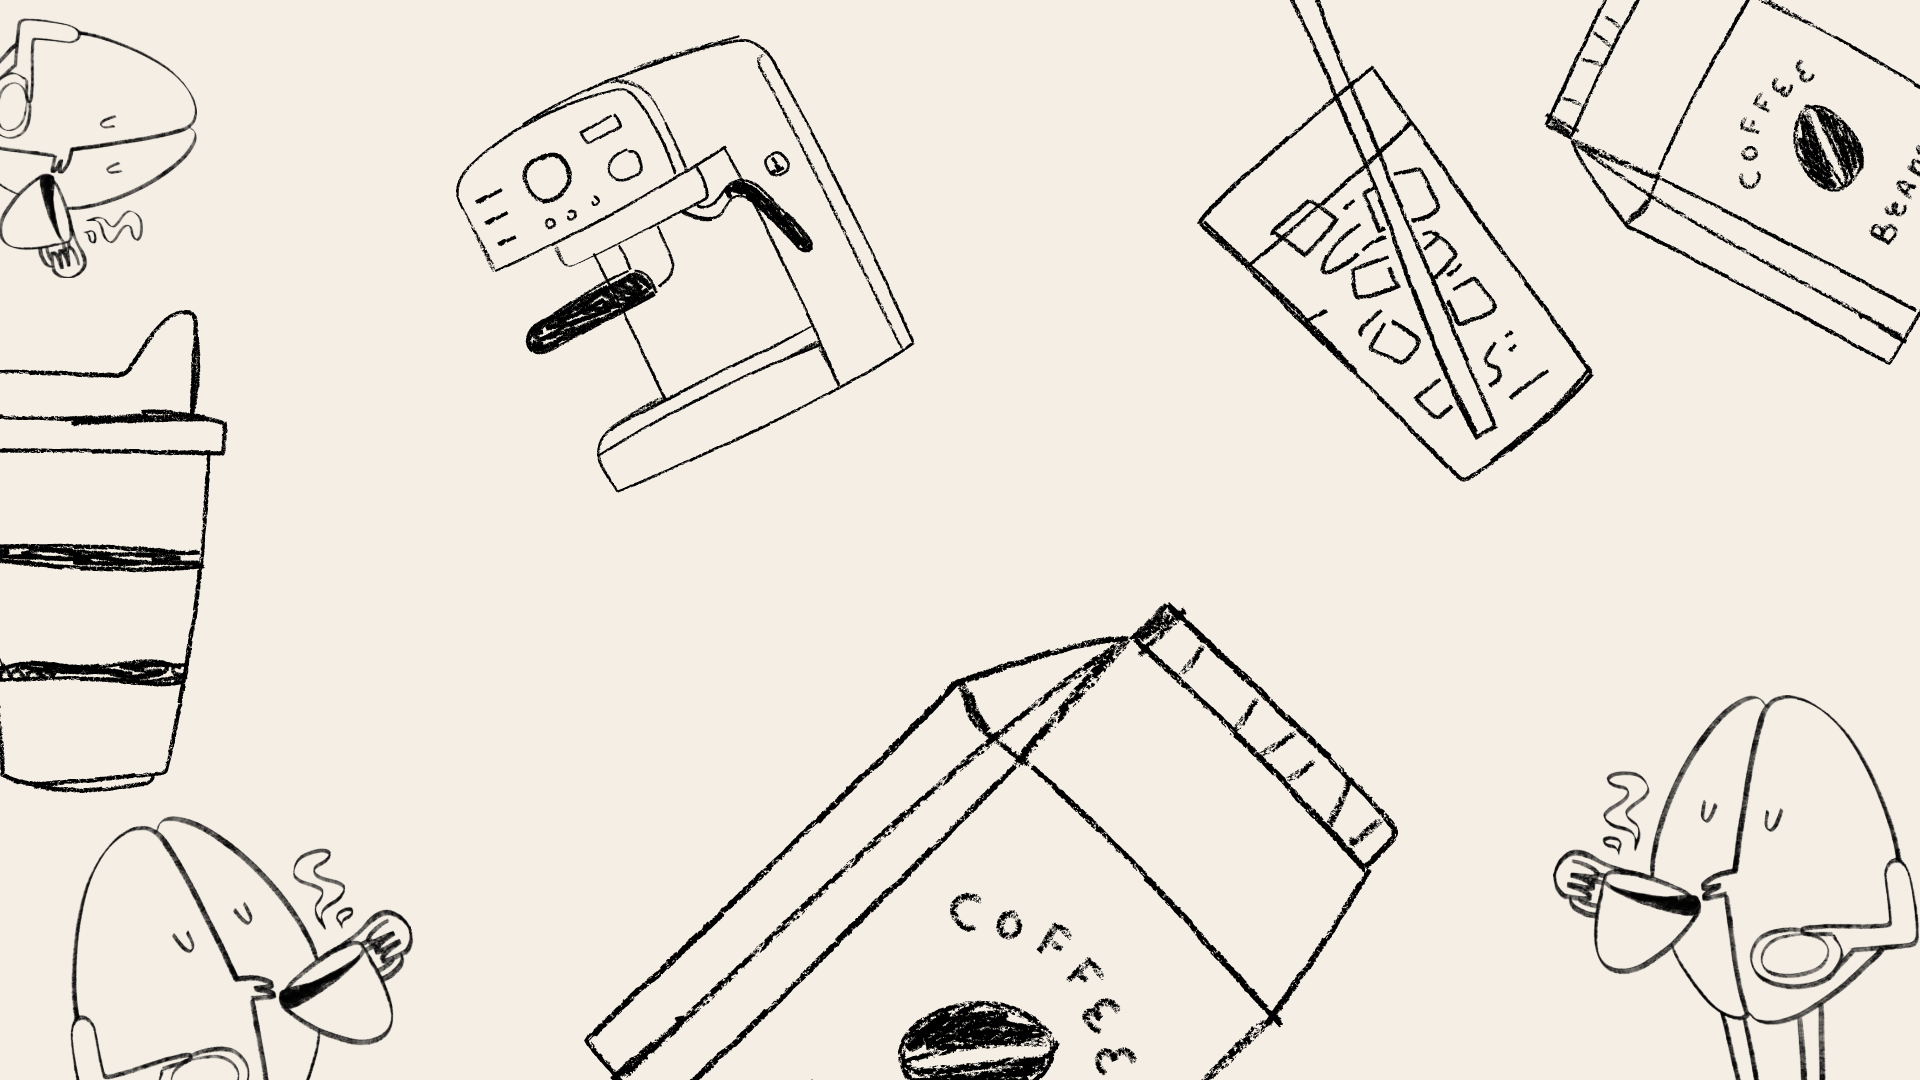 COFFEE
BEAn
COFFEE